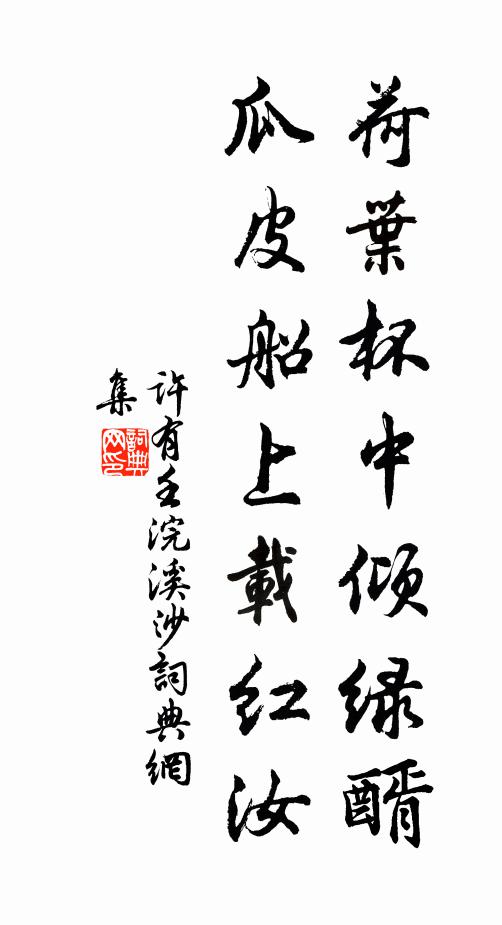 荷葉杯中傾緑醑
瓜皮船上載紅汝
許有壬浣溪沙詞典網
集
詞典
网印